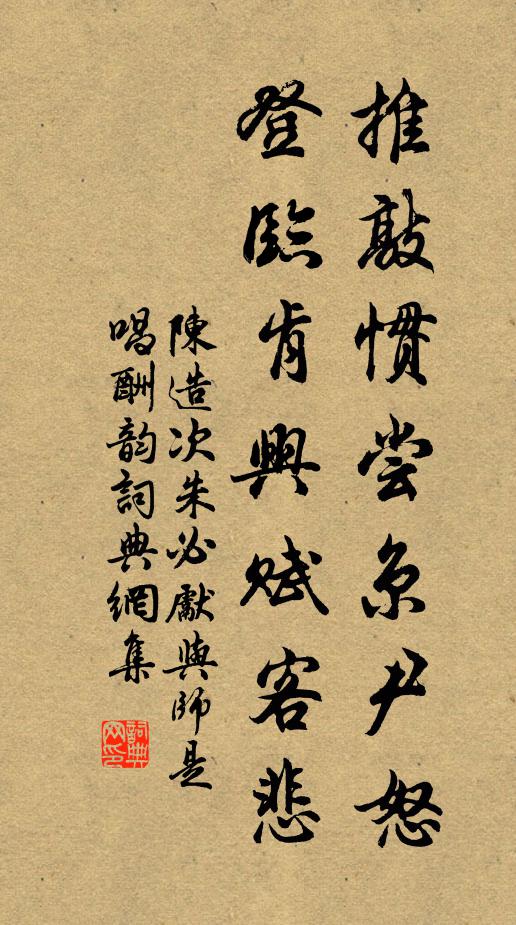 推敲慣尝京尹怒
登臨肯興賦客悲
陳造次朱必獻與師是
唱酬韵詞典網集
詞典
网印